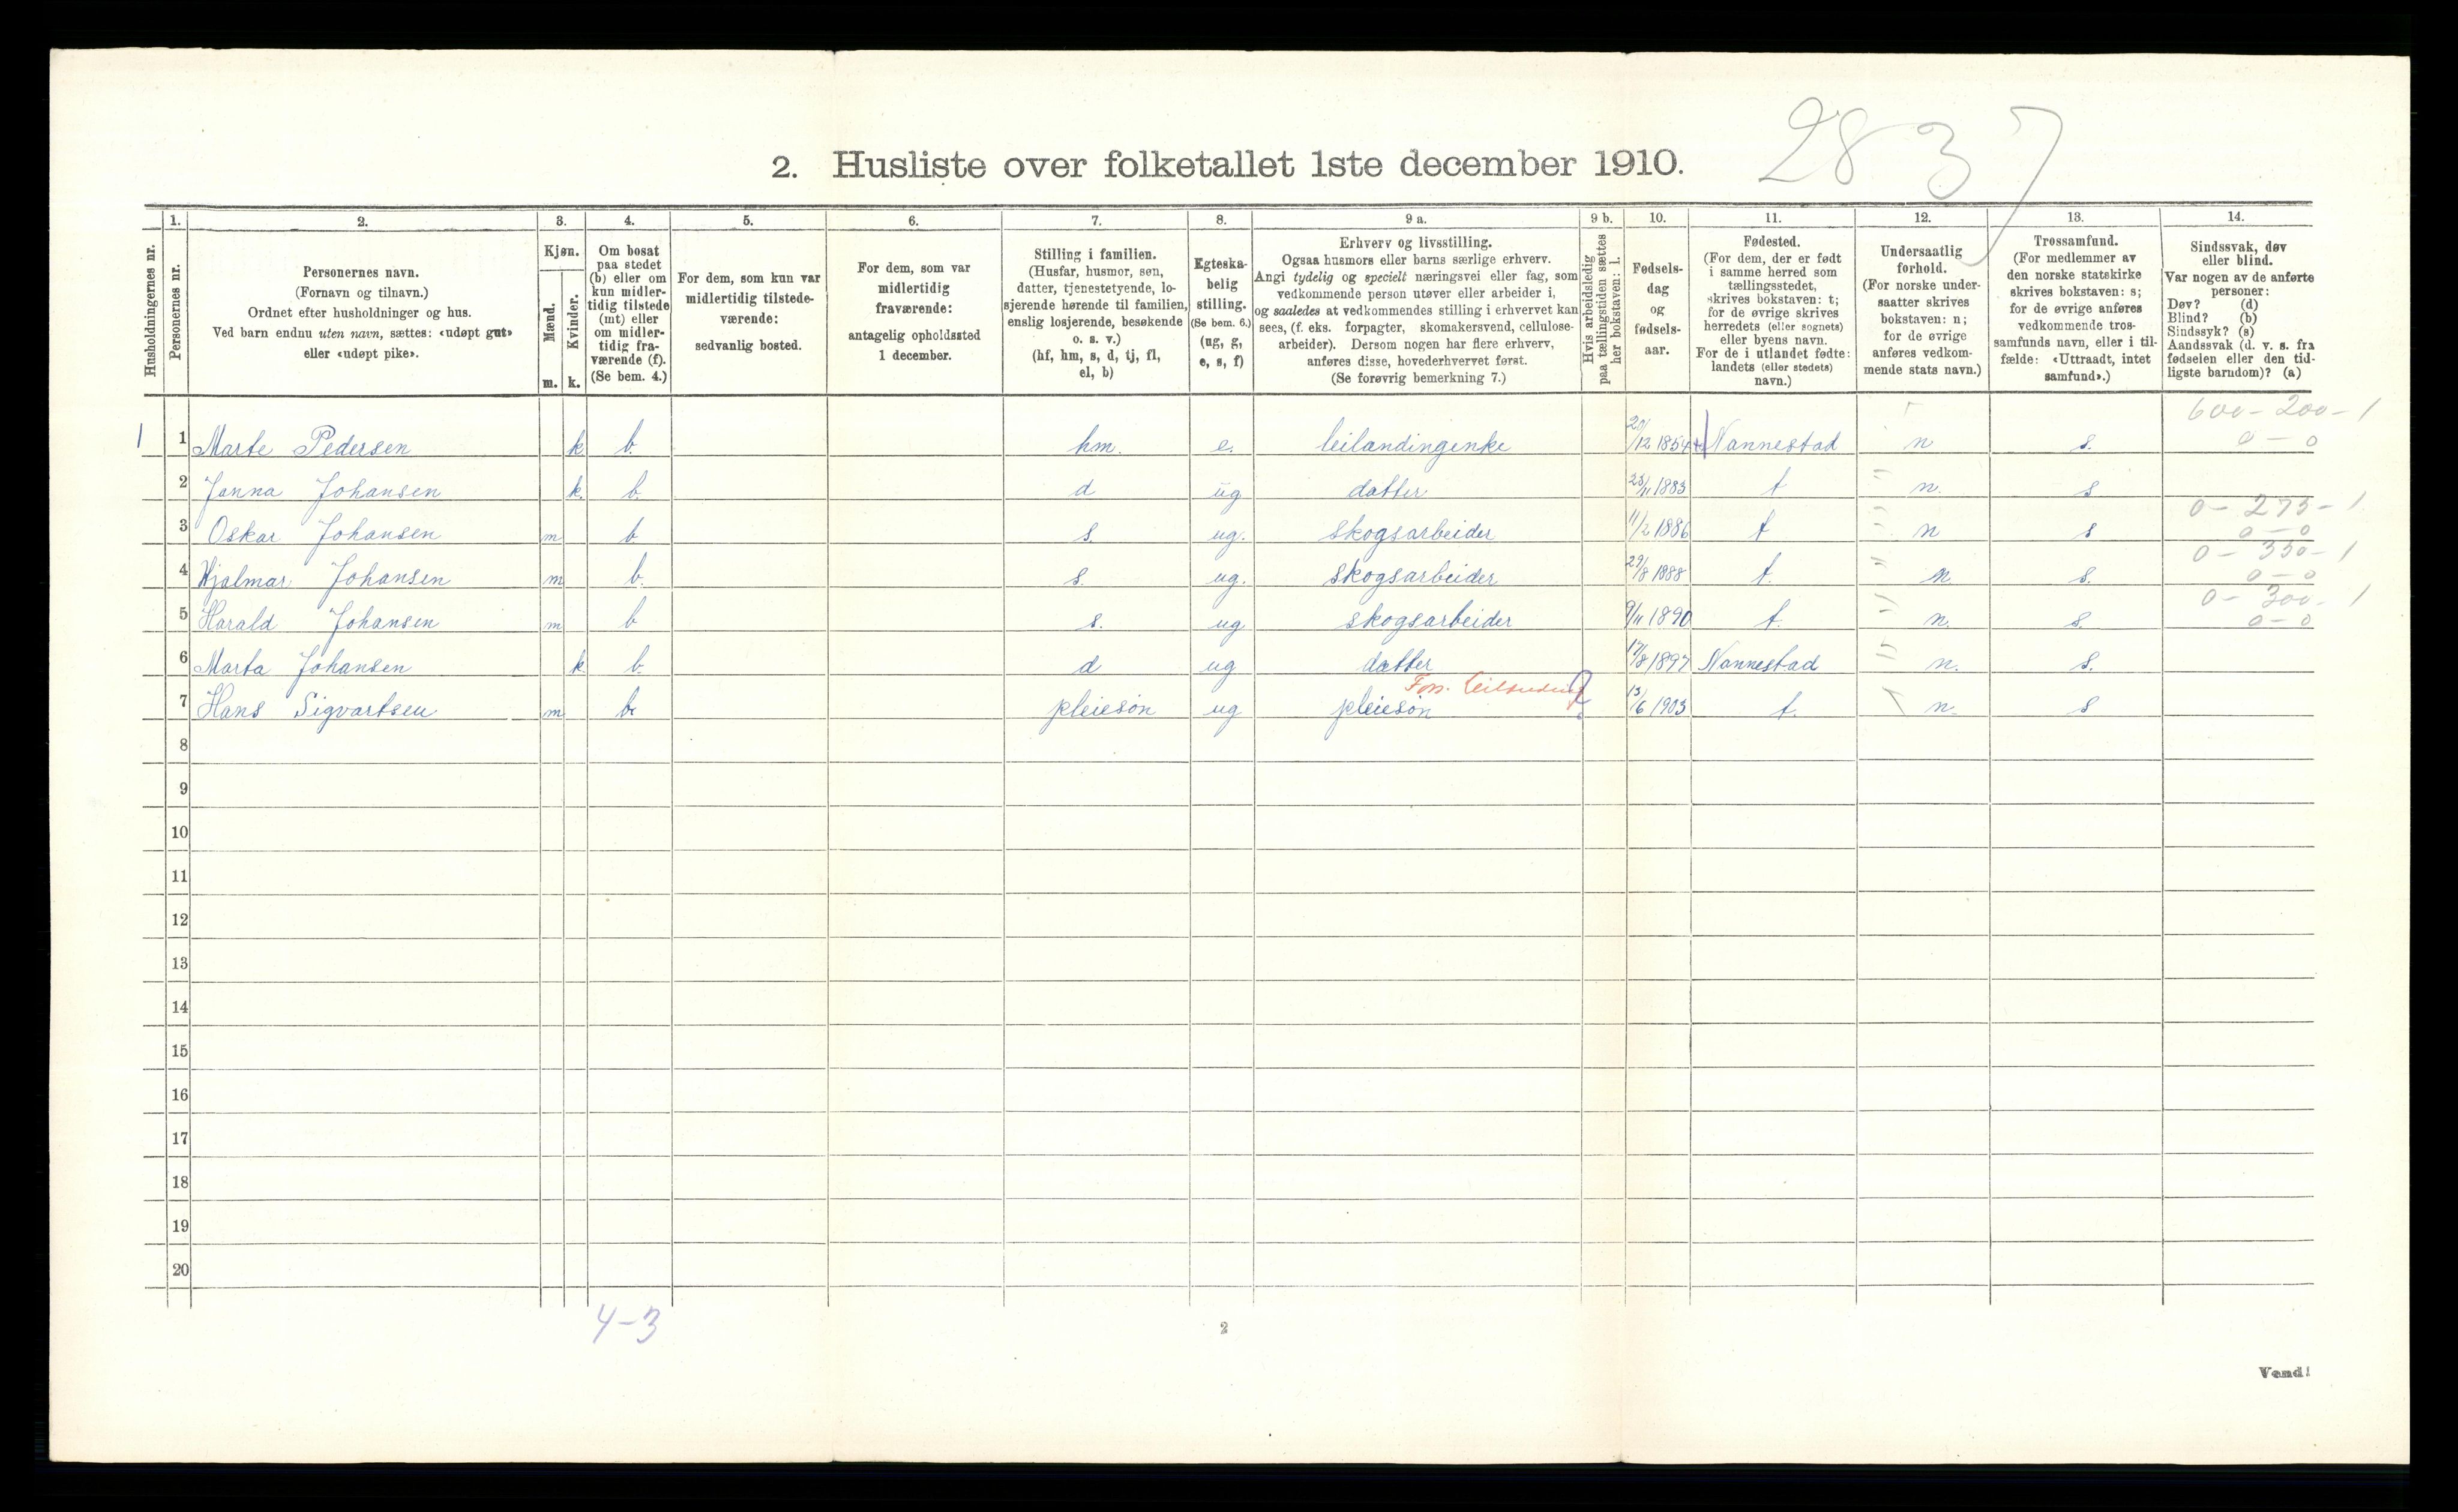 2837
2. Husliste over folketallet 1ste december 1910.
Husholdningernes nr.
1. Personernes nr.
2. Personernes navn.
(Fornavn og tilnavn.)
Ordnet efter husholdninger og hus.
Ved barn endnu uten navn, sættes: «udøpt gut»
eller «udøpt pike».
3. Kjøn.
Mænd. m.
Kvinder. k.
4. Om bosat
paa stedet
(b) eller om
kun midler-
tidig tilstede
(mt) eller
om midler-
tidig fra-
værende (f).
(Se bem. 4.)
5. For dem, som kun var
midlertidig tilstede-
værende:
sedvanlig bosted.
6. For dem, som var
midlertidig
fraværende:
antagelig opholdssted
1 december.
7. Stilling i familien.
(Husfar, husmor, søn,
datter, tjenestetyende, lo-
sjerende hørende til familien,
enslig losjerende, besøkende
o. s. v.)
(hf, hm, s, d, tj, fl,
el, b)
8. Egteska-
belig
stilling.
(Se bem. 6.)
(ug, g,
e, s, f)
9 a. Erhverv og livsstilling.
Ogsaa husmors eller barns særlige erhverv.
Angi tydelig og specielt næringsvei eller fag, som
vedkommende person utøver eller arbeider i,
og saaledes at vedkommendes stilling i erhvervet kan
sees, (f. eks. forpagter, skomakersvend, cellulose-
arbeider). Dersom nogen har flere erhverv,
anføres disse, hovederhvervet først.
(Se forøvrig bemerkning 7.)
9 b. Hvis arbeidsledig
paa tællingstiden sættes
her bokstaven: l.
10. Fødsels-
dag
og
fødsels-
aar.
11. Fødested.
(For dem, der er født
i samme herred som
tællingsstedet,
skrives bokstaven: t;
for de øvrige skrives
herredets (eller sognets)
eller byens navn.
For de i utlandet fødte:
landets (eller stedets)
navn.)
12. Undersaatlig
forhold.
(For norske under-
saatter skrives
bokstaven: n;
for de øvrige
anføres vedkom-
mende stats navn.)
13. Trossamfund.
(For medlemmer av
den norske statskirke
skrives bokstaven: s;
for de øvrige anføres
vedkommende tros-
samfunds navn, eller i til-
fælde: «Uttraadt, intet
samfund».)
14. Sindssvak, døv
eller blind.
Var nogen av de anførte
personer:
Døv? (d)
Blind? (b)
Sindssyk? (s)
Aandssvak (d. v. s. fra
fødselen eller den tid-
ligste barndom)? (a)
600 - 200 - 1
1 1 Marte Pedersen k b. hm. e. leilandingenke 20/12 1854 Nannestad n s. 0 - 0
2 Janna Johansen k. b. d ug datter 23/11 1883 t n. s
0 - 275 - 1
3 Oskar Johansen m b s. ug. skogsarbeider 11/2 1886 t n s 0 - 0
0 - 350 - 1
4 Hjalmar Johansen m b. s. ug. skogsarbeider 29/8 1888 t. n. s. 0 - 0
0 - 300 - 1
5 Harald Johansen m b s. ug skogsarbeider 9/11 1890 t. n. s. 0 - 0
6 Marta Johansen k b. d ug datter 17/8 1897 Nannestad n. s.
Fors.
7 Hans Sigvartsen m b. pleiesøn ug pleiesøn 13/6 1903 t. n. s
8
9
10
11
12
13
14
15
16
17
18
19
20
4-3
2
Vend!